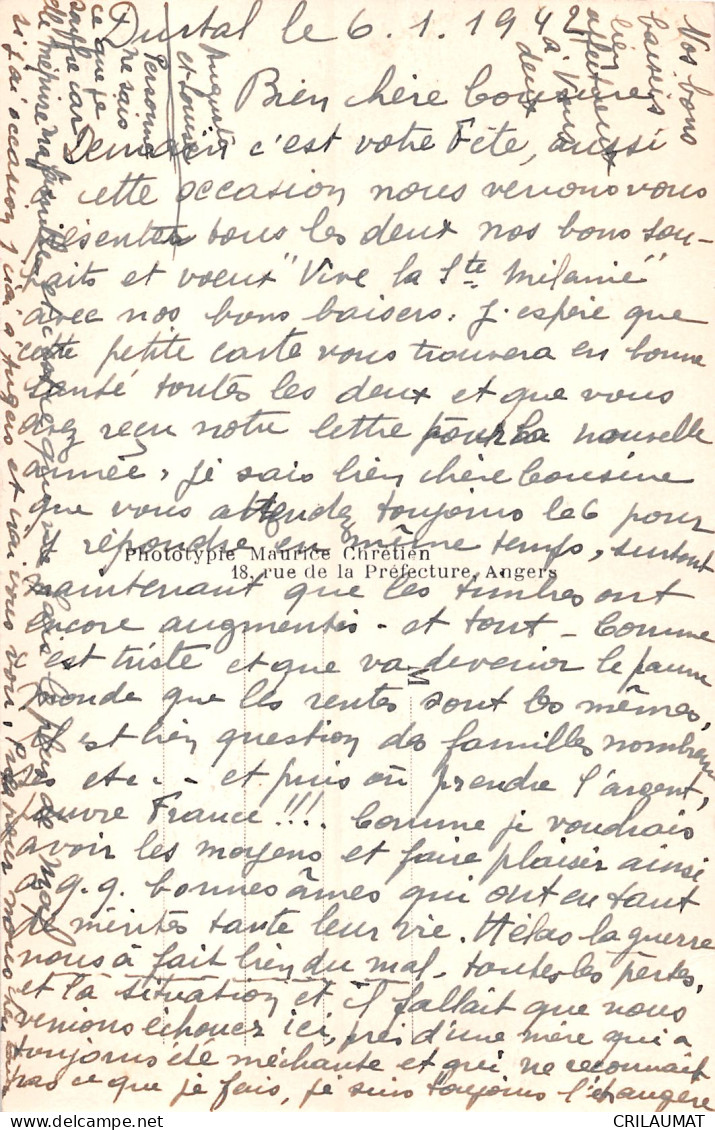 Durtal le 6.1.1942
Bien chère Cousine
Demain c'est votre Fête, aussi
cette occasion nous venons vous
présenter tous les deux nos bons sou-
haits et voeux "Vive la Ste Mélanie"
avec nos bons baisers. J'espère que
cette petite carte vous trouvera en bonne
santé toutes les deux et que vous
avez reçu notre lettre pour la nouvelle
année, je sais bien chère Cousine
que vous attendez toujours le 6 pour
répondre en même temps, surtout
maintenant que les timbres ont
encore augmentés - et tout - Comme
c'est triste et que va devenir le pauvre
monde que les rentes sont les mêmes,
Il est bien question des familles nombreu
ses etc - et puis où prendre l'argent,
pauvre France !!!. Comme je voudrais
avoir les moyens et faire plaisir ainsi
à q.q. bonnes âmes qui ont eu tant
de mérites toute leur vie. Hélas la guerre
nous a fait bien du mal - toutes les pertes,
et la situation et il fallait que nous
venions échouer ici, près d'une mère qui a
toujours été méchante et qui ne reconnait
pas ce que je fais, je suis toujours l'étrangère
Phototypie Maurice Chrétien
18, rue de la Préfecture, Angers
M
si j'ai occasion j'irai à Angers et irai vous voir,
Personne
ne sais
ce que je
souffre car
Nos bons
baisers
bien
affectueux
à Vous
deux
Auguste
et Louise
CRILAUMAT